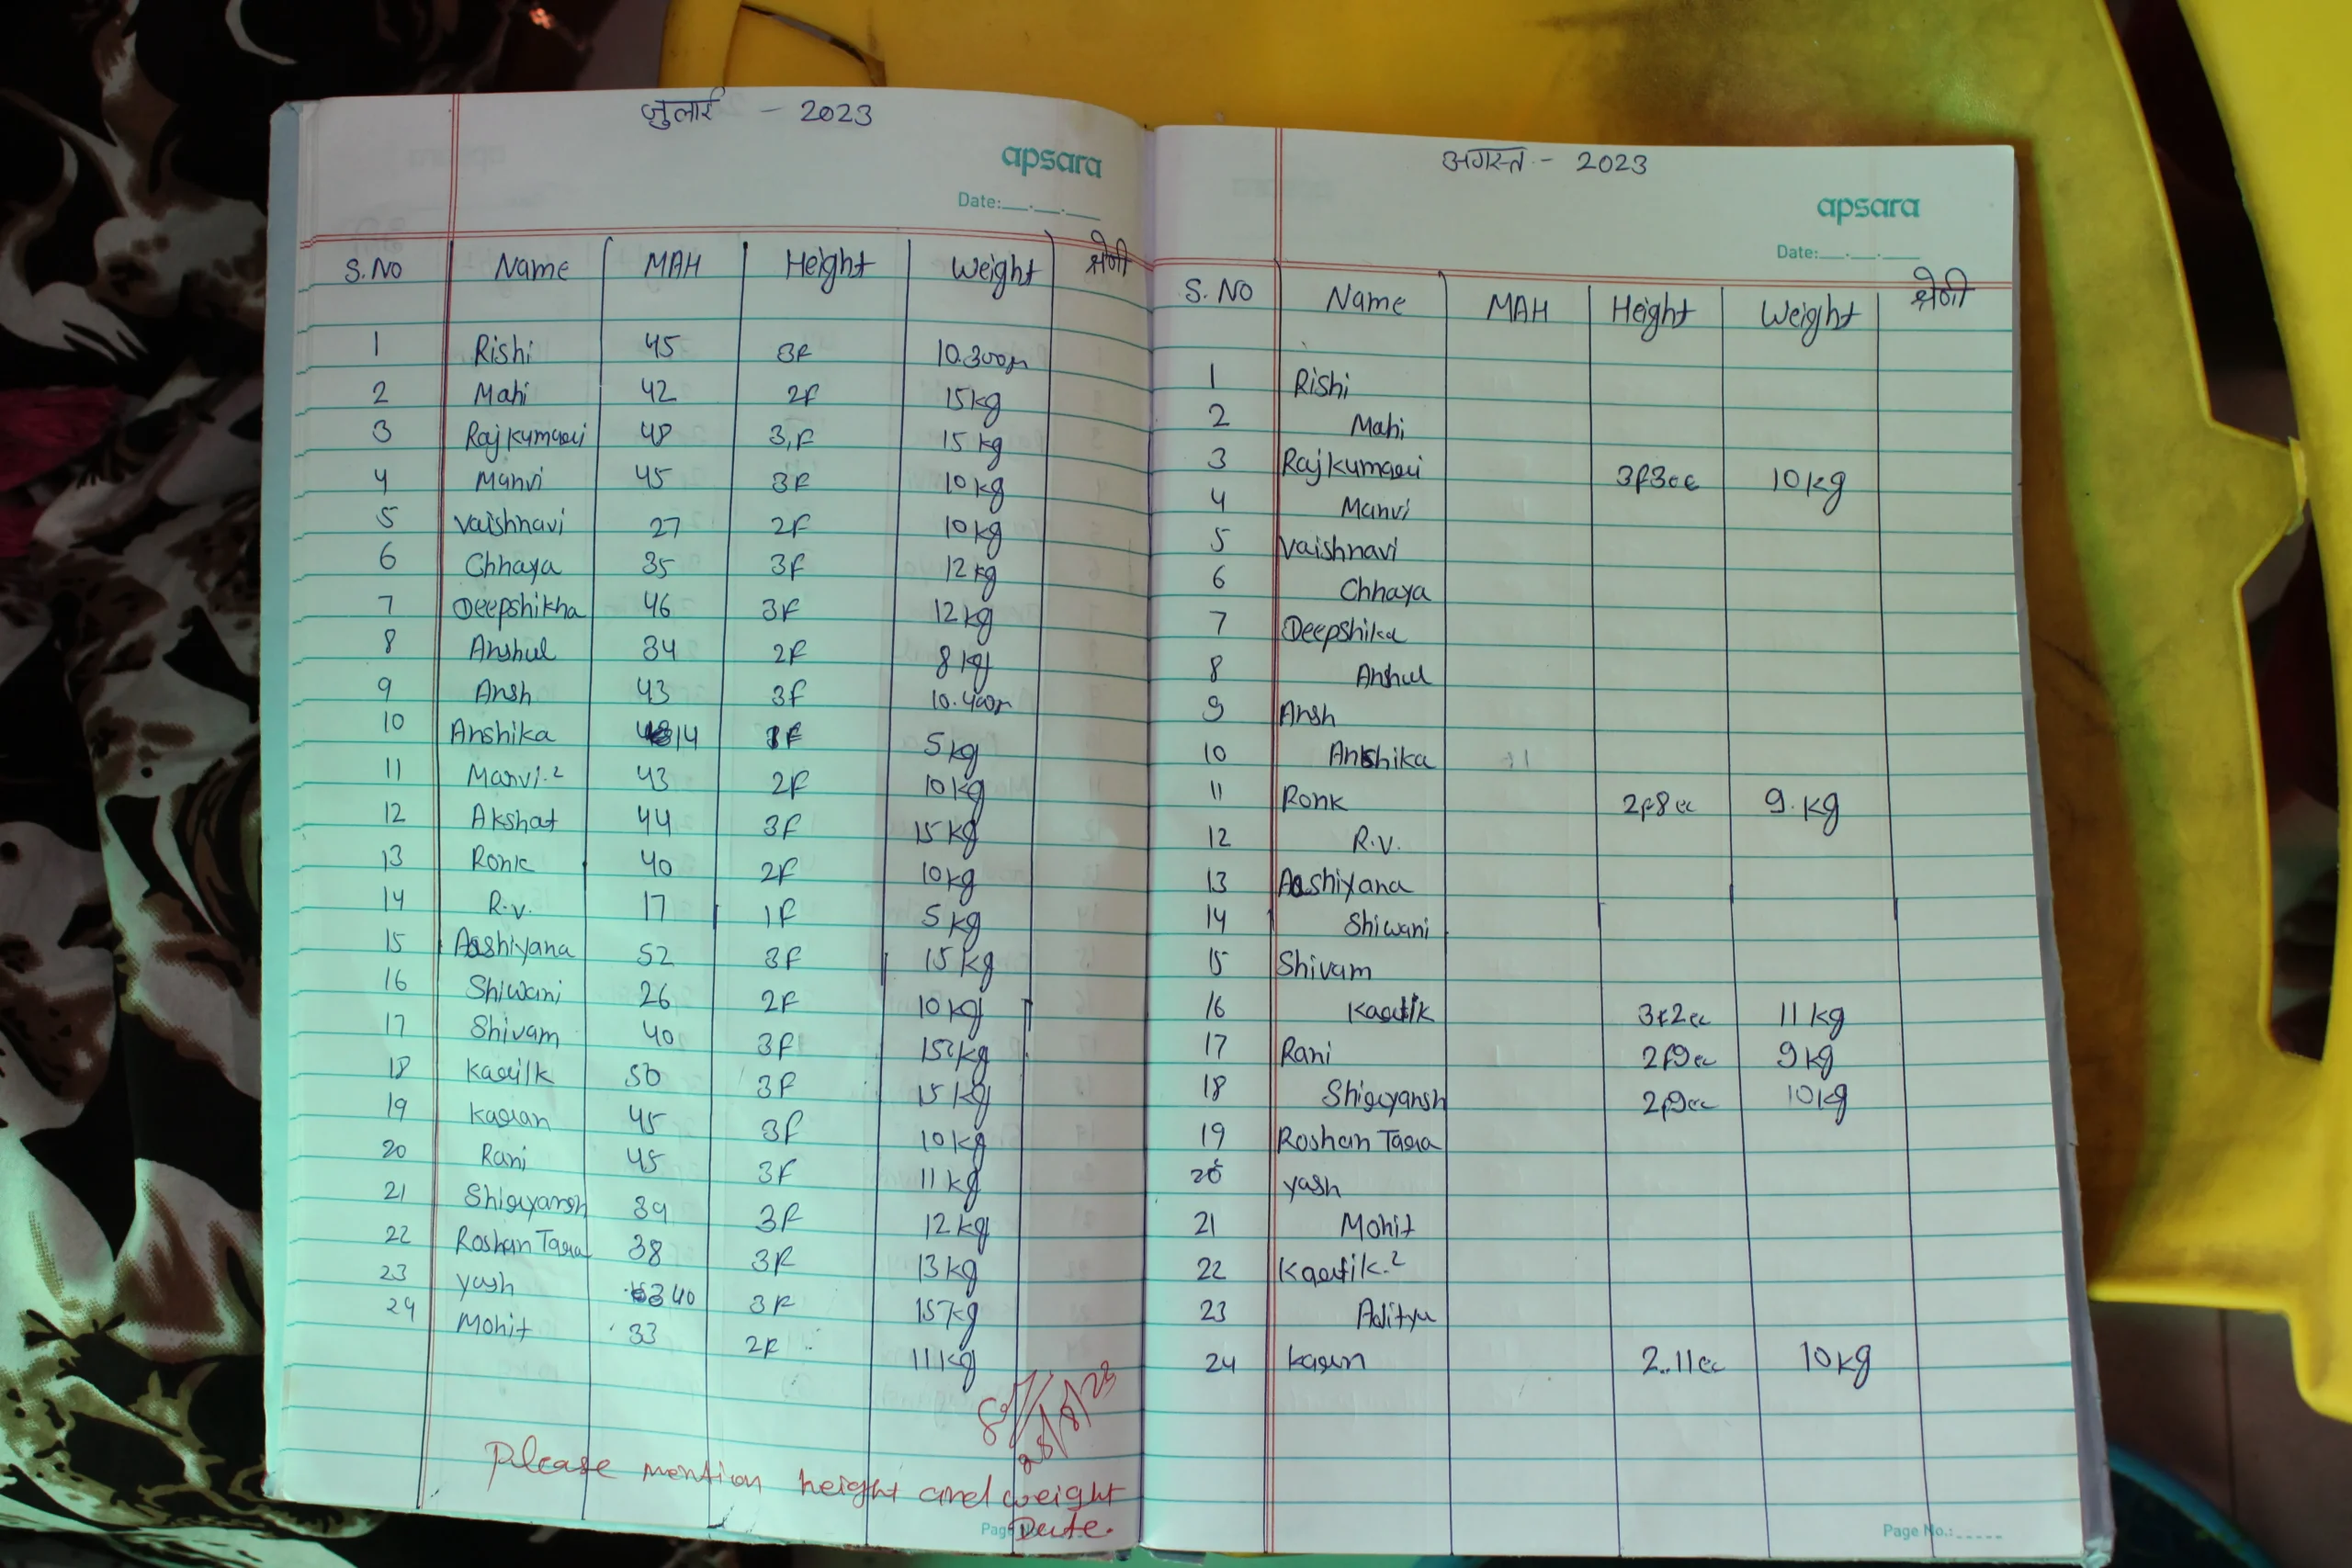 जुलाई - 2023
apsara
Date:
S.No Name MAH Height Weight श्रेणी
1 Rishi 45 3f 10.300gm
2 Mahi 42 2f 15kg
3 Rajkumari 48 3,f 15 kg
4 Manvi 45 3f 10 kg
5 Vaishnavi 27 2f 10 kg
6 Chhaya 35 3f 12 kg
7 Deepshikha 46 3f 12 kg
8 Anshul 34 2f 8 kg
9 Ansh 43 3f 10.400gm
10 Anshika 14 1f 5 kg
11 Manvi.2 43 2f 10 kg
12 Akshat 44 3f 15 kg
13 Ronk 40 2f 10 kg
14 R.v. 17 1f 5 kg
15 Aashiyana 52 3f 15 kg
16 Shiwani 26 2f 10 kg
17 Shivam 40 3f kg
18 Kartik 50 3f 15 kg
19 Karan 45 3f 10 kg
20 Rani 45 3f 11 kg
21 Shreyansh 39 3f 12 kg
22 Roshan Tara 38 3f 13 kg
23 yash 40 3f 15 kg
24 Mohit 33 2f 11 kg
28/8/23
Please mention height and weight
Date.
Page No.:
अगस्त - 2023
apsara
Date:
S. No Name MAH Height Weight श्रेणी
1 Rishi
2 Mahi
3 Rajkumari 3f3cc 10 kg
4 Manvi
5 Vaishnavi
6 Chhaya
7 Deepshika
8 Anshul
9 Ansh
10 Anshika
11 Ronk 2f8cc 9.kg
12 R.v.
13 Aashiyana
14 Shiwani
15 Shivam
16 Kartik 3f2cc 11 kg
17 Rani 2f9cc 9 kg
18 Shreyansh 2f9cc 10 kg
19 Roshan Tara
20 yash
21 Mohit
22 Kartik.2
23 Aditya
24 Karan 2.11cc 10 kg
Page No.: